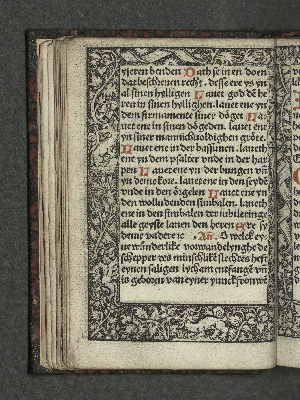 yseren benden Dath se in en doen
dat beschreuen recht. desse ere ys yn
al sinen hylligen Lauet god de he
ren in sinen hyllighen. lauet ene yn
dem firmamente siner döget La
uet ene in sinen dögeden. lauet ene
yn siner mannichuoldighen gröte.
Lauet ene in der bassunen. laueth
ene yn dem psalter vnde in der har
pen Lauet ene yn der bungen vn̄
yn deme kore. lauet ene in den seydē
vnde in der örgelen Lauet ene yn
den wolludenden simbalen. laueth
ene in den simbalen der iubileringe
alle geyste lauen den heren Ere sy
deme vadere ꝛc. Añ. O welck ey
ne wūderlike vorwandelynghe de
schepper des minschlikē slechtes heft
eynen saligen lycham entfangē vn̄
is geboren van eyner yunckfrōwē